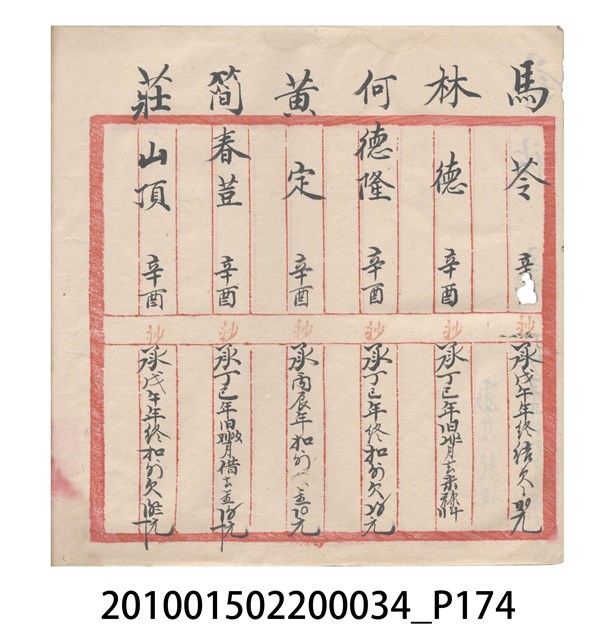 馬苓 辛
抄
承戊午年終結欠
元
林德 辛酉
抄
承丁巳年旧
月去
何德隆 辛酉
抄
承丁巳年終扣外欠
元
黃定 辛酉
抄
承丙辰年扣外
元
簡春荳 辛酉
抄
承丁巳年旧
月借去
元
莊山頂 辛酉
抄
承戊午年終扣外欠
元
201001502200034_P174